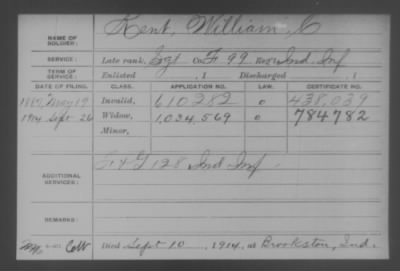 Kent, William C
NAME OF SOLDIER:
SERVICE: Late rank, Sgt Co. F 99 Reg't Ind Inf
TERM OF SERVICE: Enlisted , 1 Discharged , 1
DATE OF FILING. CLASS. APPLICATION NO. LAW. CERTIFICATE NO.
1887, May 19 Invalid, 610282 o 438,039
1914 Sept 26 Widow, 1,034,569 o 784782
Minor,
F & G 128 Ind Inf
ADDITIONAL SERVICES:
REMARKS:
Died Sept 10, 1914, at Brookston, Ind.